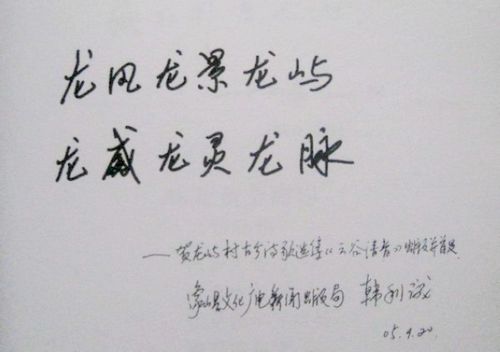 龙风龙景龙屿
龙威龙灵龙脉
——贺龙屿村古今诗歌选集《云谷清音》出版
象山县文化广电新闻出版局 韩利诚
05.9.20.